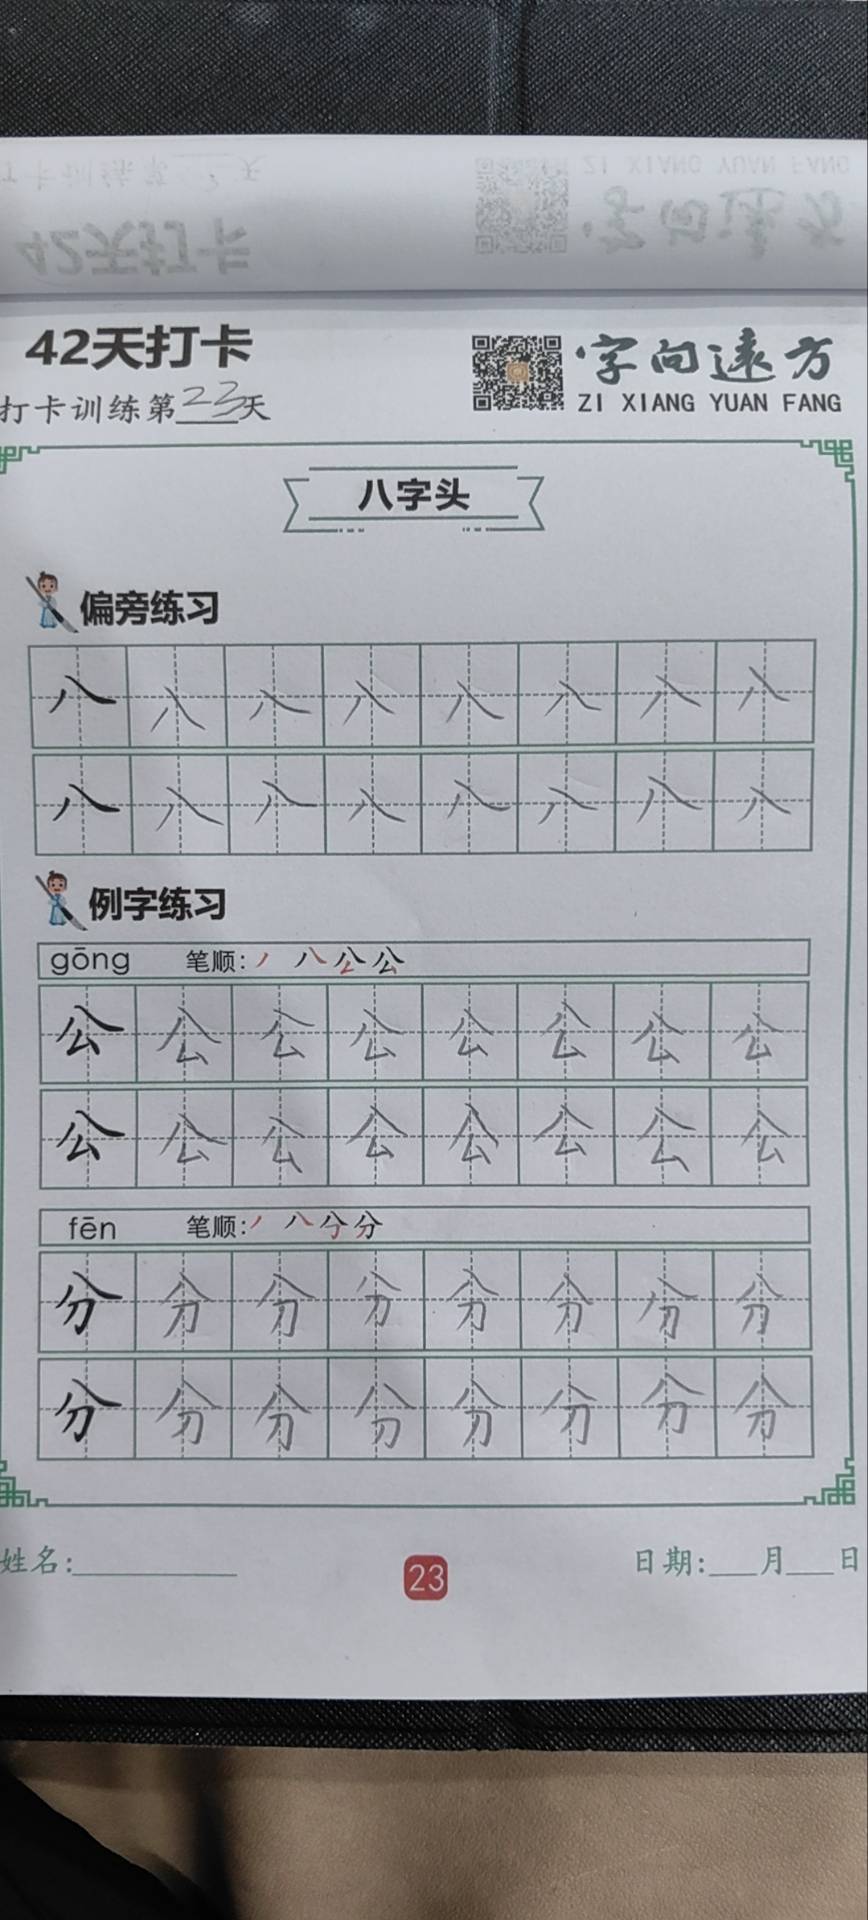 42天打卡
字向遠方
打卡训练第23天
ZI XIANG YUAN FANG
八字头
偏旁练习
八 八 八 八 八 八 八 八
八 八 八 八 八 八 八 八
例字练习
gōng 笔顺: 丿 八 公 公
公 公 公 公 公 公 公 公
公 公 公 公 公 公 公 公
fēn 笔顺: 丿 八 分 分
分 分 分 分 分 分 分 分
分 分 分 分 分 分 分 分
姓名:
23
日期:___月___日